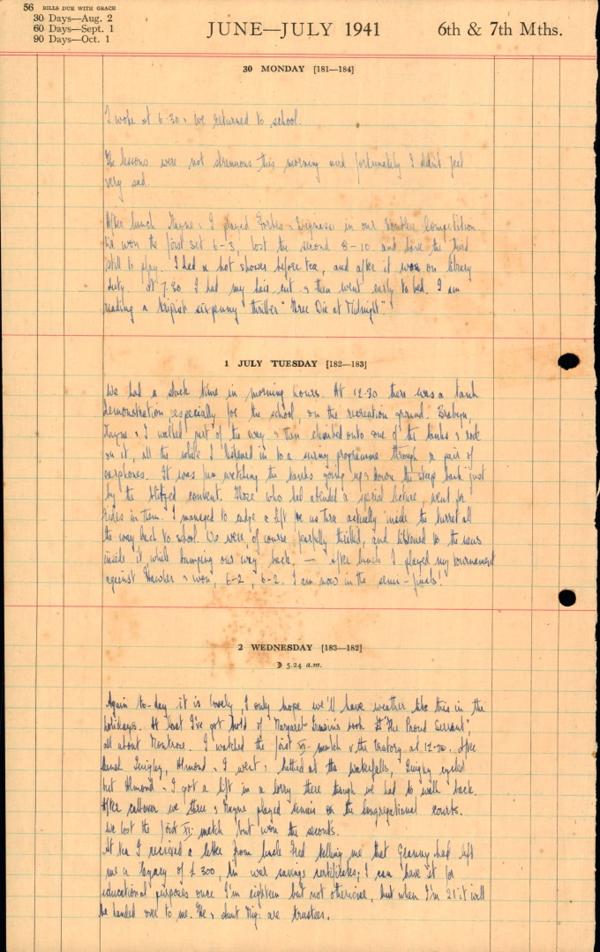 56 BILLS DUE WITH GRACE
30 Days—Aug. 2
60 Days—Sept. 1
90 Days—Oct. 1
JUNE—JULY 1941
6th & 7th Mths.
30 MONDAY [181—184]
I woke at 6.30 & we returned to school.
The lessons were not strenuous this morning and fortunately I didn't feel
very sad.
After lunch Hayne & I played Forbes & in our Doubles Competition.
We won the first set 6-3, lost the second 8-10 and have the third
still to play. I had a hot shower before tea, and after it was on library
duty. At 7.30 I had my hair cut & then went early to bed. I am
reading a sixpenny thriller "Three Die at Midnight"
1 JULY TUESDAY [182—183]
We had a slack time in morning hours. At 12.30 there was a tank
demonstration especially for the school, on the recreation ground.
Hayne & I walked part of the way & then climbed onto one of the tanks & rode
on it, all the while I listened in to a programme through a pair of
earphones. It was fun watching the tanks going up & down the steep bank just
by the blitzed convent. Those who had attended a special lecture went for
rides in them. I managed to a lift for us three actually inside the turret all
the way back to school. We were, of course, thrilled, and listened to the news
inside it while bumping our way back, — After lunch I played my tournament
against Hawker & won, 6-2, 6-2. I am now in the semi-finals!
2 WEDNESDAY [183—182]
☽ 5.24 a.m.
Again to-day it is lovely, I only hope we'll have weather like this in the
holidays. At last I've got hold of Margaret Irwin's book "The Proud Servant",
all about Montrose. I watched the first XI match v the Oratory at 12.30. After
lunch Quigley, Almond & I went & bathed at the waterfalls, Quigley cycled
but Almond & I got a lift in a lorry there though we had to walk back.
After callover we three & Hayne played tennis on the Congregational courts.
We lost the first XI match but won the seconds.
At tea I received a letter from Uncle Fred telling me that Granny had left
me a legacy of £300, in war savings certificates; I can have it for
educational purposes once I'm eighteen but not otherwise, but when I'm 21 it will
be handed over to me. He & Aunt are trustees.